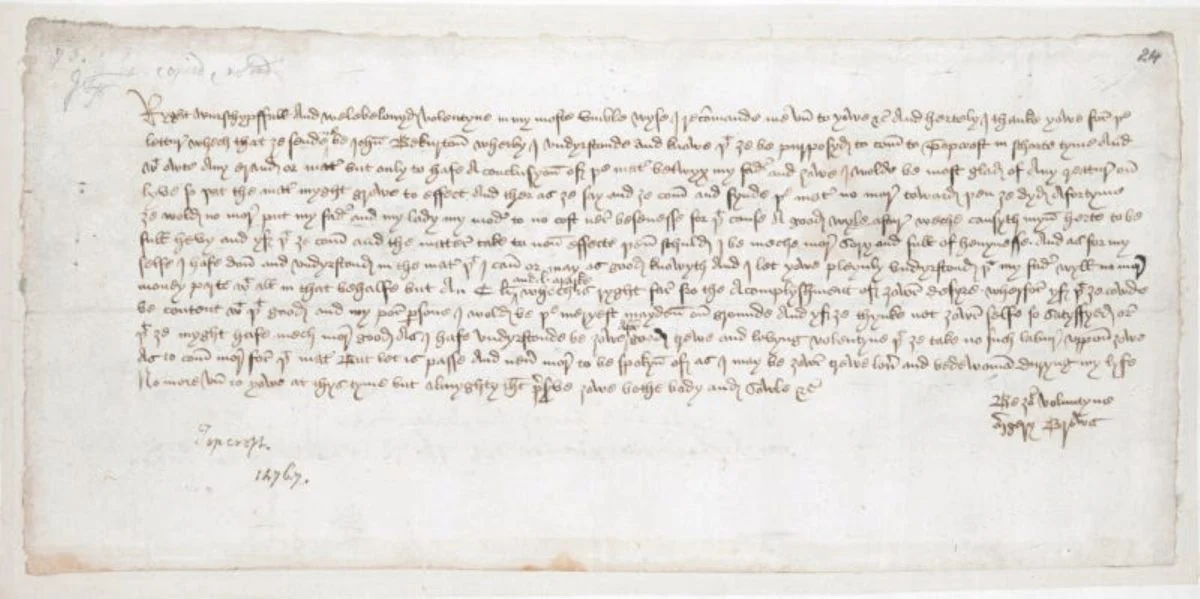 24
Ryght wurschypffull and welebelowyd Volentyne in my moste umble wyse I recomande me un to yowe &c And hertely I thanke yowe for þe
letter wheche that ze sende me be John Bekurton wherby I undyrstonde and knowe þt ze be purposyd to com to Topcroft in schorte tyme And
wt owte any erand or mater but only to hafe a conclusyon of þe mater betwyx my fadr and zowe I wolde be most glad of any creatur on
lyve so þat the mater myght growe to effect And ther as ze say and ze com and fynde þe mater no mor toward þen ze dyd afortyme
ze wold no mor put my fadr and my lady my modr to no cost ner besenesse for þt cause a good wyle aftyr weche causyth myn herte to be
full hevy and yf þt ze com and the mater take to non effecte þen schuld I be meche mor sory and full of hevynesse And as for my
selfe I hafe don and undyrstond in the mater þt I can or may as good knowyth And I let yowe pleynly undyrstond þt my fadr wyll no mor
money parte wt all in that behalfe but an C li and l marke
wheche is ryght far fro the acomplyshment of zowr desyre wherfor yf þt ze cowde
be content wt þt good and my por persone I wold be þe meryest mayden on grounde And yf ze thynke not zowr selfe so satysfyed or
þt ze myght hafe mech mor good as I hafe undyrstonde be zowe afor good trewe and lovyng Volentyne þt ze take no such labur uppon zowe
As to com mor for þt mater But let is passe and never mor to be spokyn of as I may be zowr trewe lover and bedewoman duryng my lyfe
No more un to yowe at thys tyme but almyghty Jhu preserve zowe bothe body and sowle &c
Be zor Voluntyne
Mergery Brews
Topcroft.